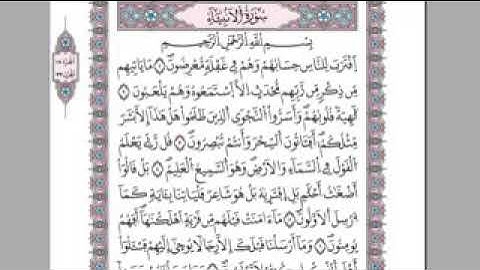 سُورَةُ الْأَنبِيَاءِ
بِسْمِ اللَّهِ الرَّحْمَٰنِ الرَّحِيمِ
اقْتَرَبَ لِلنَّاسِ حِسَابُهُمْ وَهُمْ فِي غَفْلَةٍ مُّعْرِضُونَ ۝ مَا يَأْتِيهِم
مِّن ذِكْرٍ مِّن رَّبِّهِم مُّحْدَثٍ إِلَّا اسْتَمَعُوهُ وَهُمْ يَلْعَبُونَ ۝
لَاهِيَةً قُلُوبُهُمْ وَأَسَرُّوا النَّجْوَى الَّذِينَ ظَلَمُوا هَلْ هَٰذَا إِلَّا بَشَرٌ
مِّثْلُكُمْ أَفَتَأْتُونَ السِّحْرَ وَأَنتُمْ تُبْصِرُونَ ۝ قَالَ رَبِّي يَعْلَمُ
الْقَوْلَ فِي السَّمَاءِ وَالْأَرْضِ وَهُوَ السَّمِيعُ الْعَلِيمُ ۝ بَلْ قَالُوا
أَضْغَاثُ أَحْلَامٍ بَلِ افْتَرَاهُ بَلْ هُوَ شَاعِرٌ فَلْيَأْتِنَا بِآيَةٍ كَمَا
أُرْسِلَ الْأَوَّلُونَ ۝ مَا آمَنَتْ قَبْلَهُم مِّن قَرْيَةٍ أَهْلَكْنَاهَا أَفَهُمْ
يُؤْمِنُونَ ۝ وَمَا أَرْسَلْنَا قَبْلَكَ إِلَّا رِجَالًا نُّوحِي إِلَيْهِمْ فَاسْأَلُوا